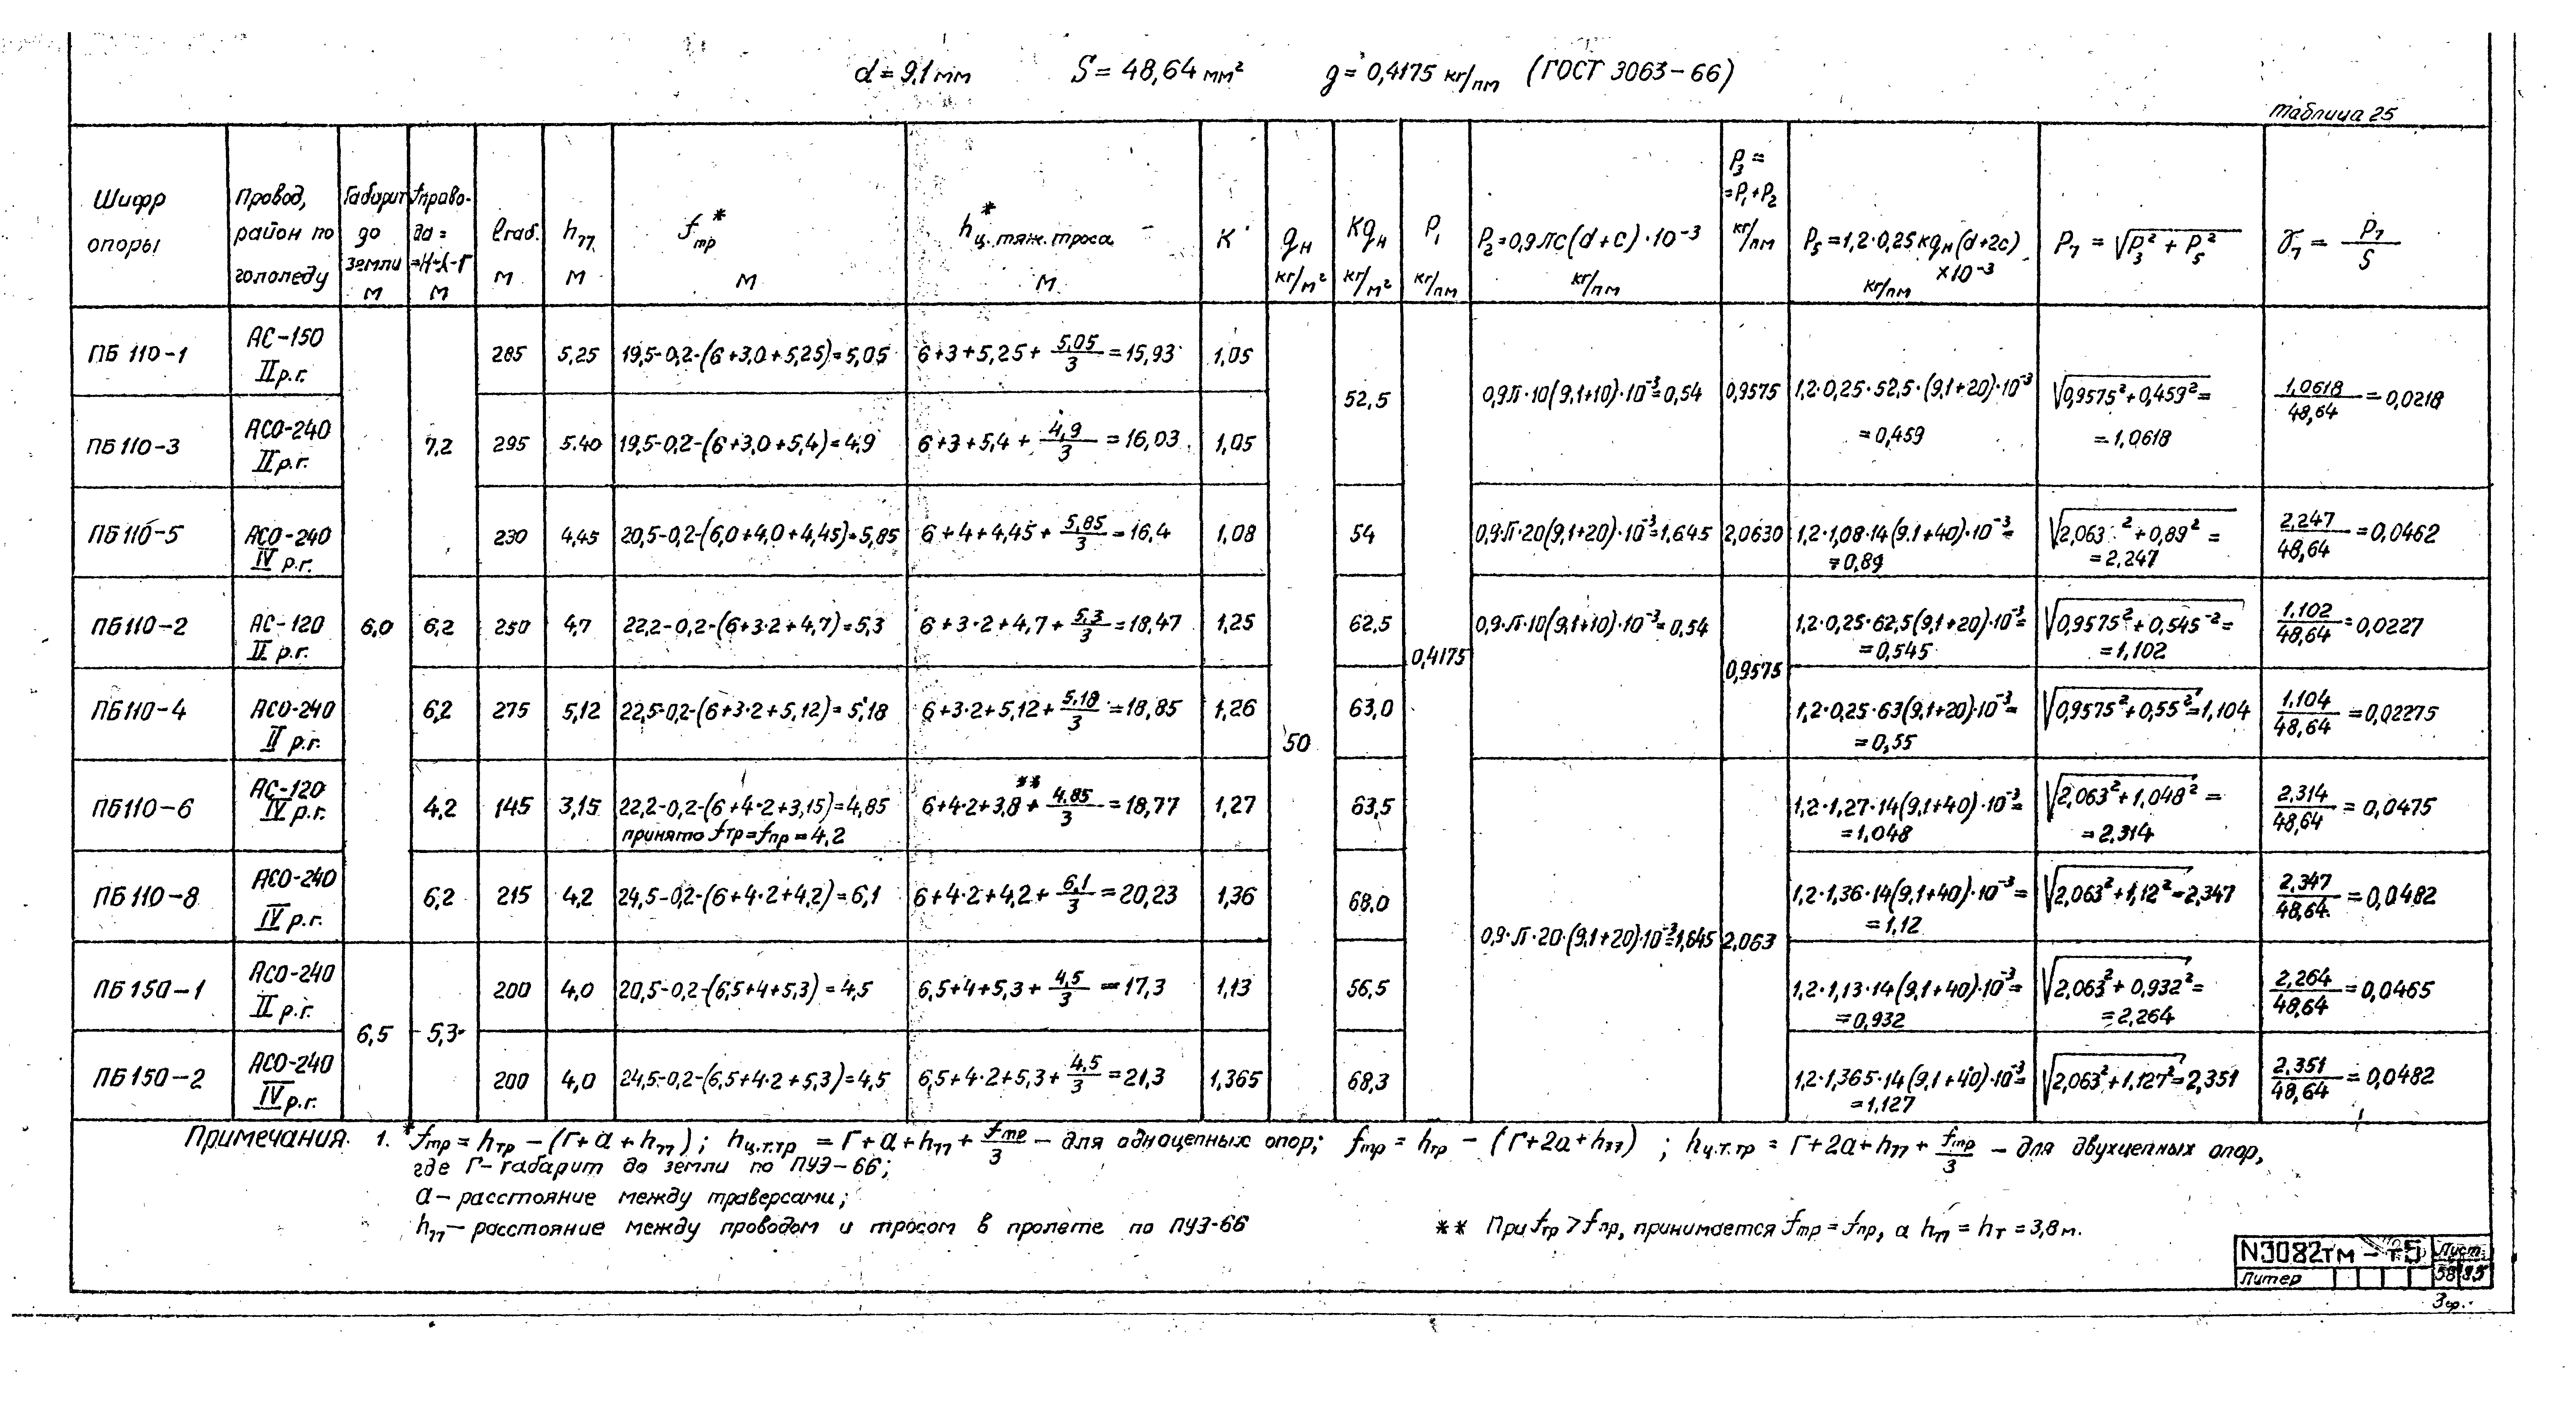 d = 9,1 мм S = 48,64 мм² g = 0,4175 кг/пм (ГОСТ 3063-66)
Таблица 25
Шифр опоры | Провод, район по гололеду | Габарит до земли м | fпрово-да = =H-λ-Г м | ℓгаб. м | h₇₇ м | fтр* м | h*ц.тяж.троса м | К | qн кг/м² | Кqн кг/м² | P₁ кг/пм | P₂=0,9πc(d+c)·10⁻³ кг/пм | P₃= =P₁+P₂ кг/пм | P₅=1,2·0,25кqн(d+2c)×10⁻³ кг/пм | P₇=√P₃²+P₅² | γ₇=P₇/S
ПБ 110-1 | АС-150 II р.г. | 285 | 5,25 | 19,5-0,2-(6+3,0+5,25)=5,05 | 6+3+5,25+5,05/3=15,93 | 1,05
52,5 | 0,9π·10(9,1+10)·10⁻³=0,54 | 0,9575 | 1,2·0,25·52,5·(9,1+20)·10⁻³=0,459 | √0,9575²+0,459²= =1,0618 | 1,0618/48,64=0,0218
ПБ 110-3 | АСО-240 II р.г. | 7,2 | 295 | 5.40 | 19,5-0,2-(6+3,0+5,4)=4,9 | 6+3+5,4+4,9/3=16,03 | 1,05
ПБ 110-5 | АСО-240 IV р.г. | 230 | 4,45 | 20,5-0,2-(6,0+4,0+4,45)=5,85 | 6+4+4,45+5,85/3=16,4 | 1,08 | 54 | 0,9·π·20(9,1+20)·10⁻³=1,645 | 2,0630 | 1,2·1,08·14(9.1+40)·10⁻³= =0,89 | √2,063²+0,89²= =2,247 | 2,247/48,64=0,0462
ПБ 110-2 | АС-120 II р.г. | 6,0 | 6,2 | 250 | 4,7 | 22,2-0,2-(6+3·2+4,7)=5,3 | 6+3·2+4,7+5,3/3=18,47 | 1,25 | 62,5 | 0,4175 | 0,9·π·10(9,1+10)·10⁻³=0,54 | 0,9575 | 1,2·0,25·62,5(9,1+20)·10⁻³= =0,545 | √0,9575²+0,545⁻²= =1,102 | 1,102/48,64=0,0227
ПБ 110-4 | АСО-240 II р.г. | 6,2 | 275 | 5,12 | 22,5-0,2-(6+3·2+5,12)=5,18 | 6+3·2+5,12+5,18/3=18,85 | 1,26 | 50 | 63,0 | 1,2·0,25·63(9,1+20)·10⁻³= =0,55 | √0,9575²+0,55²=1,104 | 1,104/48,64=0,02275
ПБ110-6 | АС-120 IV р.г. | 4,2 | 145 | 3,15 | 22,2-0,2-(6+4·2+3,15)=4,85 принято fтр=fпр=4,2 | 6+4·2+3,8**+4.85/3=18,77 | 1,27 | 63,5 | 1,2·1,27·14(9,1+40)·10⁻³= =1,048 | √2,063²+1,048²= =2,314 | 2,314/48,64=0,0475
ПБ 110-8 | АСО-240 IV р.г. | 6,2 | 215 | 4,2 | 24,5-0,2-(6+4·2+4,2)=6,1 | 6+4·2+4,2+6,1/3=20,23 | 1,36 | 68,0 | 0,9·π·20·(9,1+20)·10⁻³=1,645 | 2,063 | 1,2·1,36·14(9,1+40)·10⁻³= =1,12 | √2,063²+1,12²=2,347 | 2,347/48,64=0,0482
ПБ 150-1 | АСО-240 II р.г. | 200 | 4,0 | 20,5-0,2-(6,5+4+5,3)=4,5 | 6,5+4+5,3+4,5/3=17,3 | 1,13 | 56,5 | 1,2·1,13·14(9,1+40)·10⁻³= =0,932 | √2,063²+0,932²= =2,264 | 2,264/48,64=0,0465
6,5 | 5,3
ПБ 150-2 | АСО-240 IV р.г. | 200 | 4,0 | 24,5-0,2-(6,5+4·2+5,3)=4,5 | 6,5+4·2+5,3+4,5/3=21,3 | 1,365 | 68,3 | 1,2·1,365·14(9,1+40)·10⁻³= =1,127 | √2,063²+1,127²=2,351 | 2,351/48,64=0,0482
Примечания 1. *fтр=hтр-(Г+a+h₇₇); hц.т.тр=Г+a+h₇₇+fтр/3 - для одноцепных опор; fтр=hтр-(Г+2a+h₇₇); hц.т.тр=Г+2a+h₇₇+fтр/3 - для двухцепных опор,
где Г-габарит до земли по ПУЭ-66;
a - расстояние между траверсами;
h₇₇ - расстояние между проводом и тросом в пролете по ПУЭ-66 ** При fтр > fпр, принимается fтр = fпр, а h₇₇ = hт = 3,8 м.
N3082тм-т5 Лист
Литер 58 95